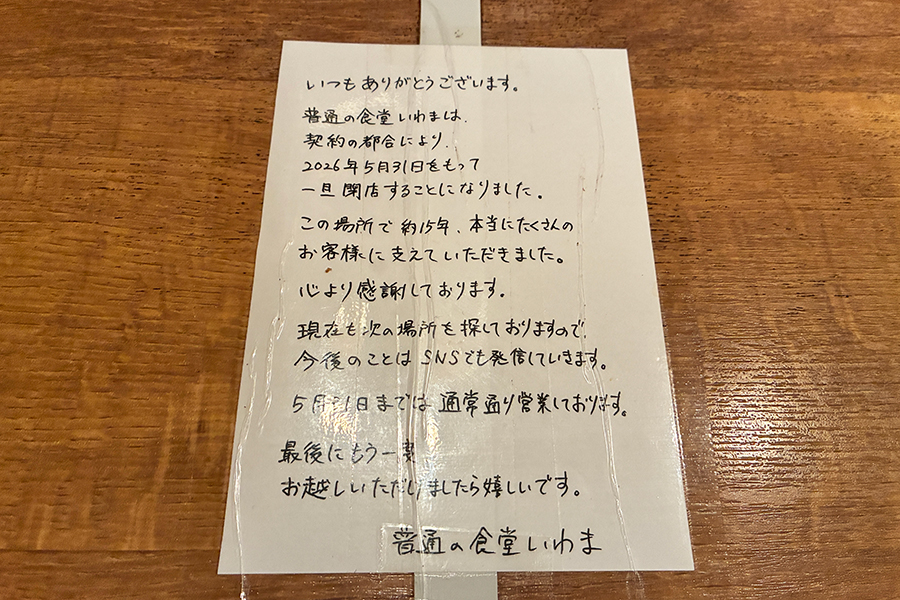 いつもありがとうございます。
普通の食堂いわまは、
契約の都合により、
2026年5月31日をもって
一旦閉店することになりました。
この場所で約15年、本当にたくさんの
お客様に支えていただきました。
心より感謝しております。
現在も次の場所を探しておりますので、
今後のことはSNSでも発信していきます。
5月31日までは通常通り営業しております。
最後にもう一度
お越しいただけましたら嬉しいです。
普通の食堂いわま